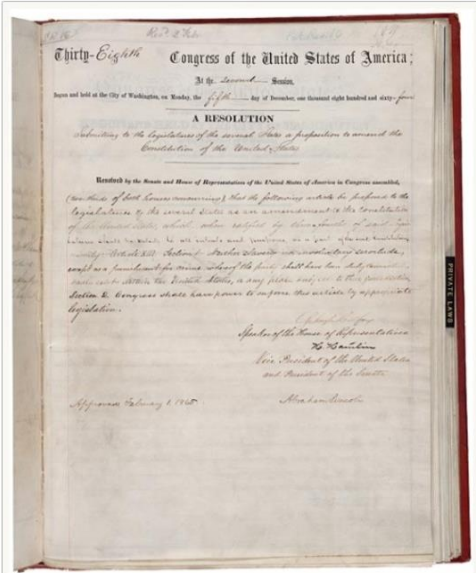 Thirty-Eighth Congress of the United States of America;
At the second Session,
Begun and held at the City of Washington, on Monday, the fifth day of December, one thousand eight hundred and sixty-four
A RESOLUTION
Submitting to the legislatures of the several States a proposition to amend the
Constitution of the United States
Resolved by the Senate and House of Representatives of the United States of America in Congress assembled,
(two thirds of both houses concurring,) that the following article be proposed to the
legislatures of the several States as an amendment to the Constitution
of the United States, which, when ratified by three-fourths of said
Section 1. Neither slavery nor involuntary servitude,
except as a punishment for crime whereof the party shall have been duly
the United States, or any place subject to their jurisdiction
Section 2. Congress shall have power to enforce this article by appropriate
legislation.
Speaker of the House of Representatives
H Hamlin
Vice President of the United States
and President of the Senate
Approved February 1, 1865
Abraham Lincoln
PRIVATE LAWS